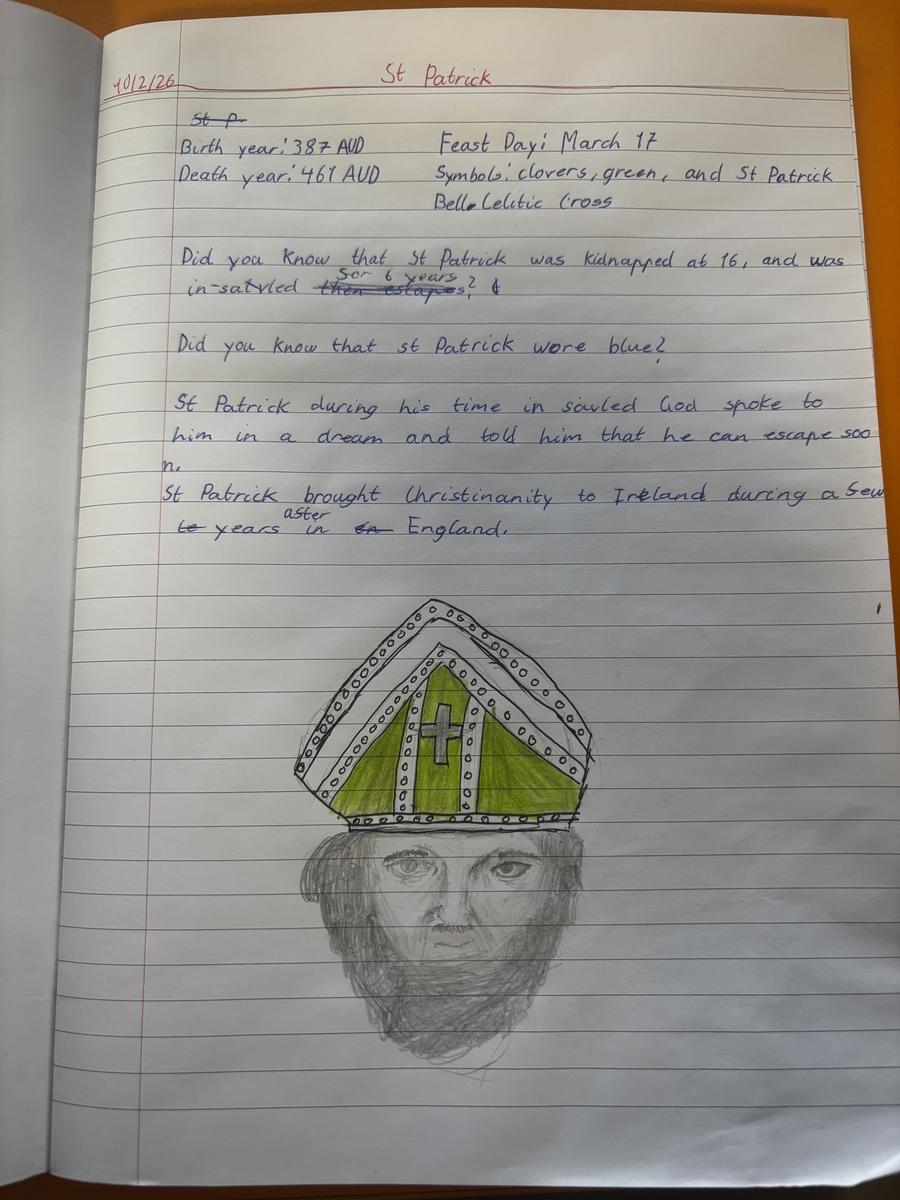 10/2/26 St Patrick
St P
Birth year: 387 AUD
Death year: 461 AUD
Feast Day: March 17
Symbols: clovers, green, and St Patrick
Bell. Celitic Cross
Did you know that St Patrick was kidnapped at 16, and was
for 6 years
in-satvled then estapes?
Did you know that st Patrick wore blue?
St Patrick during his time in savled God spoke to
him in a dream and told him that he can escape soo
n.
St Patrick brought Christinanity to Ireland during a few
after
te years in en England.